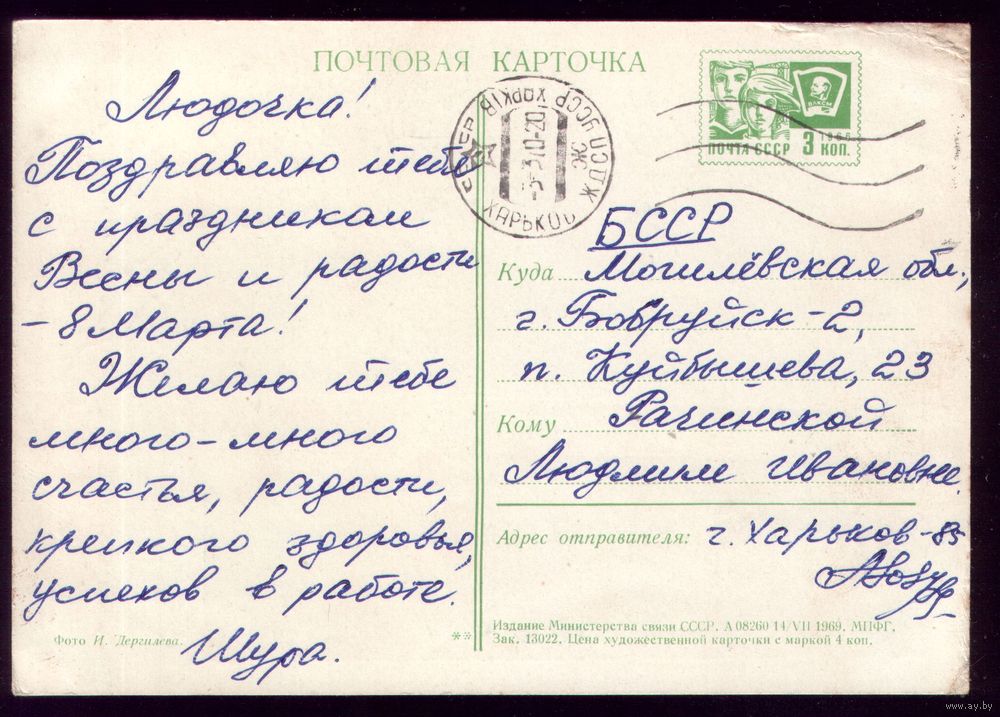 ПОЧТОВАЯ КАРТОЧКА
Людочка!
Поздравляю тебя
с праздником
Весны и радости
– 8 Марта!
Желаю тебе
много-много
счастья, радости,
крепкого здоровья,
успехов в работе.
Шура.
Фото И. Дергилева.
**
ВЛКСМ
1966
ПОЧТА СССР 3 КОП.
УССР ХАРКІВ
ХАРЬКОВ
БССР
Куда Могилёвская обл.,
г. Бобруйск-2,
п. Куйбышева, 23
Кому Рачинской
Людмиле Ивановне.
Адрес отправителя: г. Харьков-85
Издание Министерства связи СССР. А 08260 14/VII 1969. МПФГ.
Зак. 13022. Цена художественной карточки с маркой 4 коп.
www.ay.by